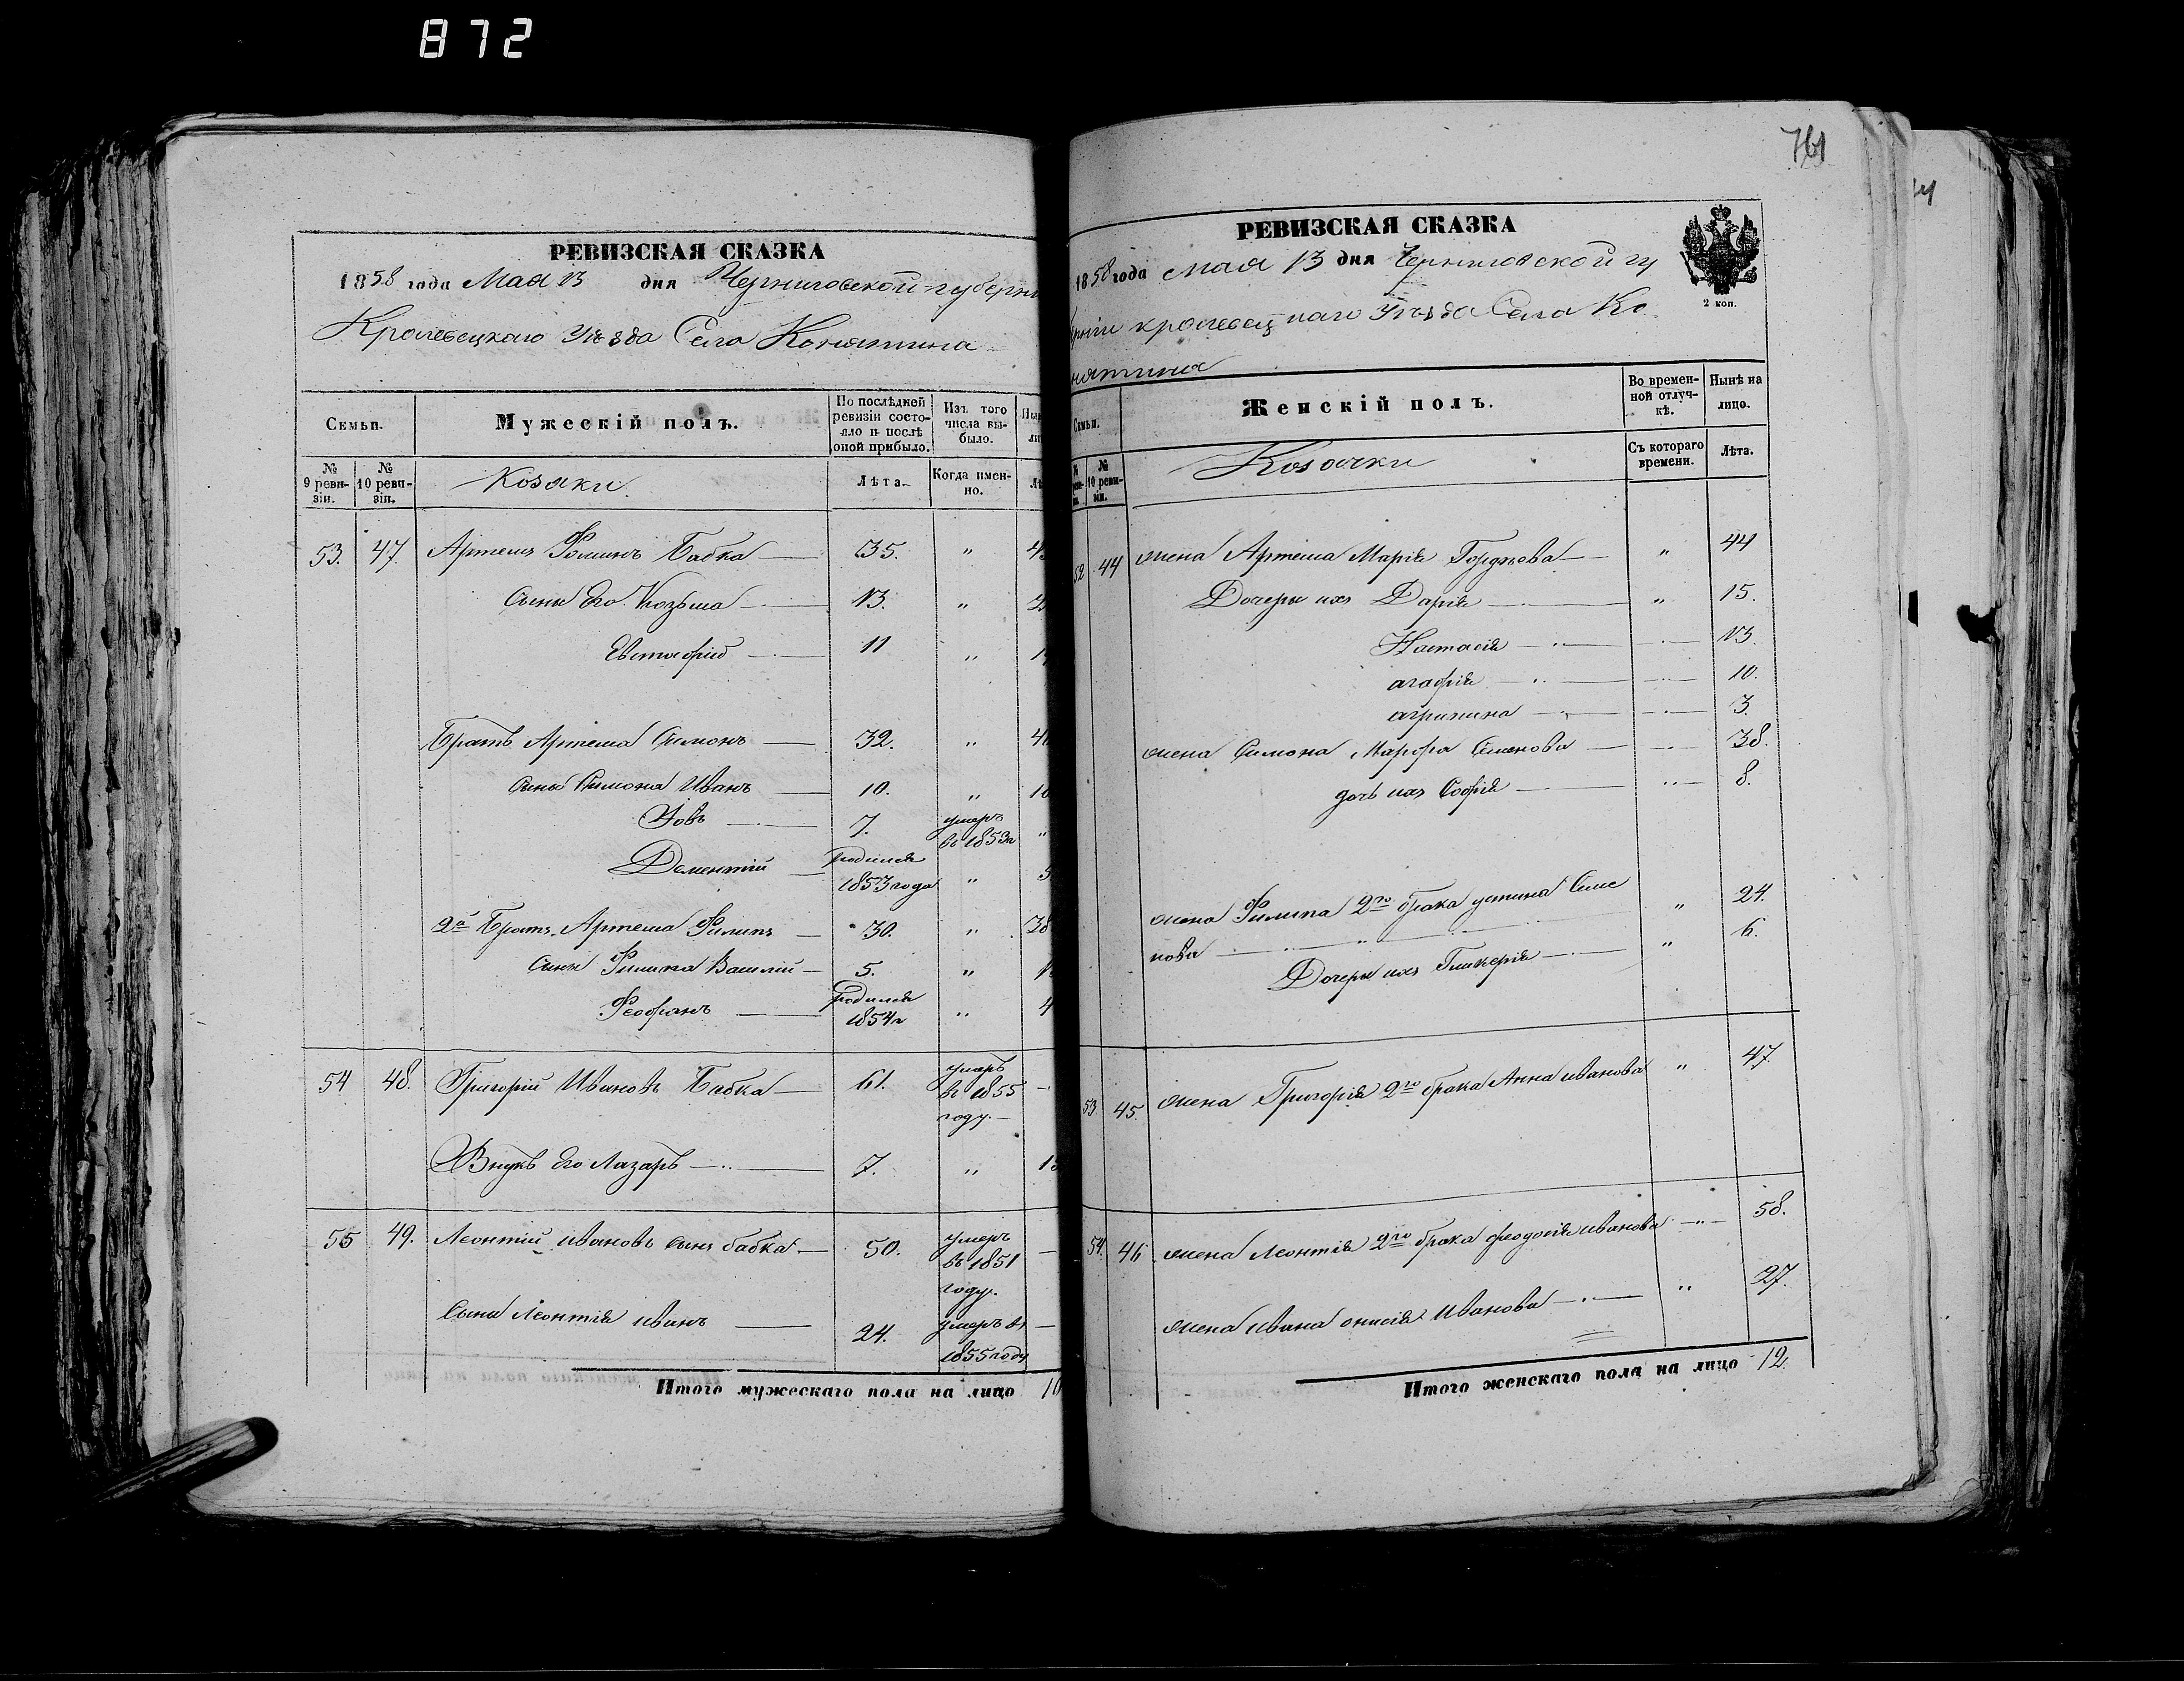 872
РЕВИЗСКАЯ СКАЗКА
1858 года Мая 13 дня Черниговской губерни
Кролевецкаго Уѣзда Села Конятина
Семьи. Мужескій полъ. По послѣдней ревизіи состояло и послѣ оной прибыло. Изъ того числа выбыло.
№ 9 ревизіи. № 10 ревизіи. Козаки Лѣта. Когда именно.
53. 47. Артемъ Фоминъ Бабка — 35. "
Сыны Его Козьма — 13. "
Евстафій — 11 "
Братъ Артема Симонъ — 32. "
Сыны Симона Иванъ — 10. "
Іовъ — 7. умеръ въ 1853г "
Дементій — родился 1853 года "
2й Братъ Артема Филипъ — 30. " 38
Сыны Филипа Василій — 5. "
Феофанъ — родился 1854г " 4
54 48. Григорій Ивановъ Бабка — 61. умеръ въ 1855 году. —
Внукъ Его Лазарь — 7. "
55 49. Леонтій ивановъ сынъ бабка — 50. умеръ въ 1851 году. —
Сынъ Леонтія иванъ — 24. умеръ въ 1855 году —
Итого мужескаго пола на лицо 10
761
РЕВИЗСКАЯ СКАЗКА
1858 года мая 13 дня Черниговской гу
берніи кролевецкаго Уѣзда Села Ко
нятина
2 коп.
Семьи. Женскій полъ. Во временной отлучкѣ. Нынѣ на лицо.
№ 10 ревизіи. Козачки Съ котораго времени. Лѣта.
52 44 жена Артема Марія Гордѣева — " 44
Дочери ихъ Дарія — " 15.
Настасія — " — 13.
агафія — " — 10.
агрипина — " — 3.
жена Симона Марфа Семенова — 38.
дочь ихъ Софія — " — 8.
жена Филипа 2го брака устина Симо " 24.
нова — "
Дочери ихъ Гликерія — " 6.
53 45. жена Григорія 2го брака Анна иванова " 47.
54. 46 жена Леонтія 2го брака феодосія иванова — " — 58.
жена ивана онисія Иванова — " 27.
Итого женскаго пола на лицо 12.